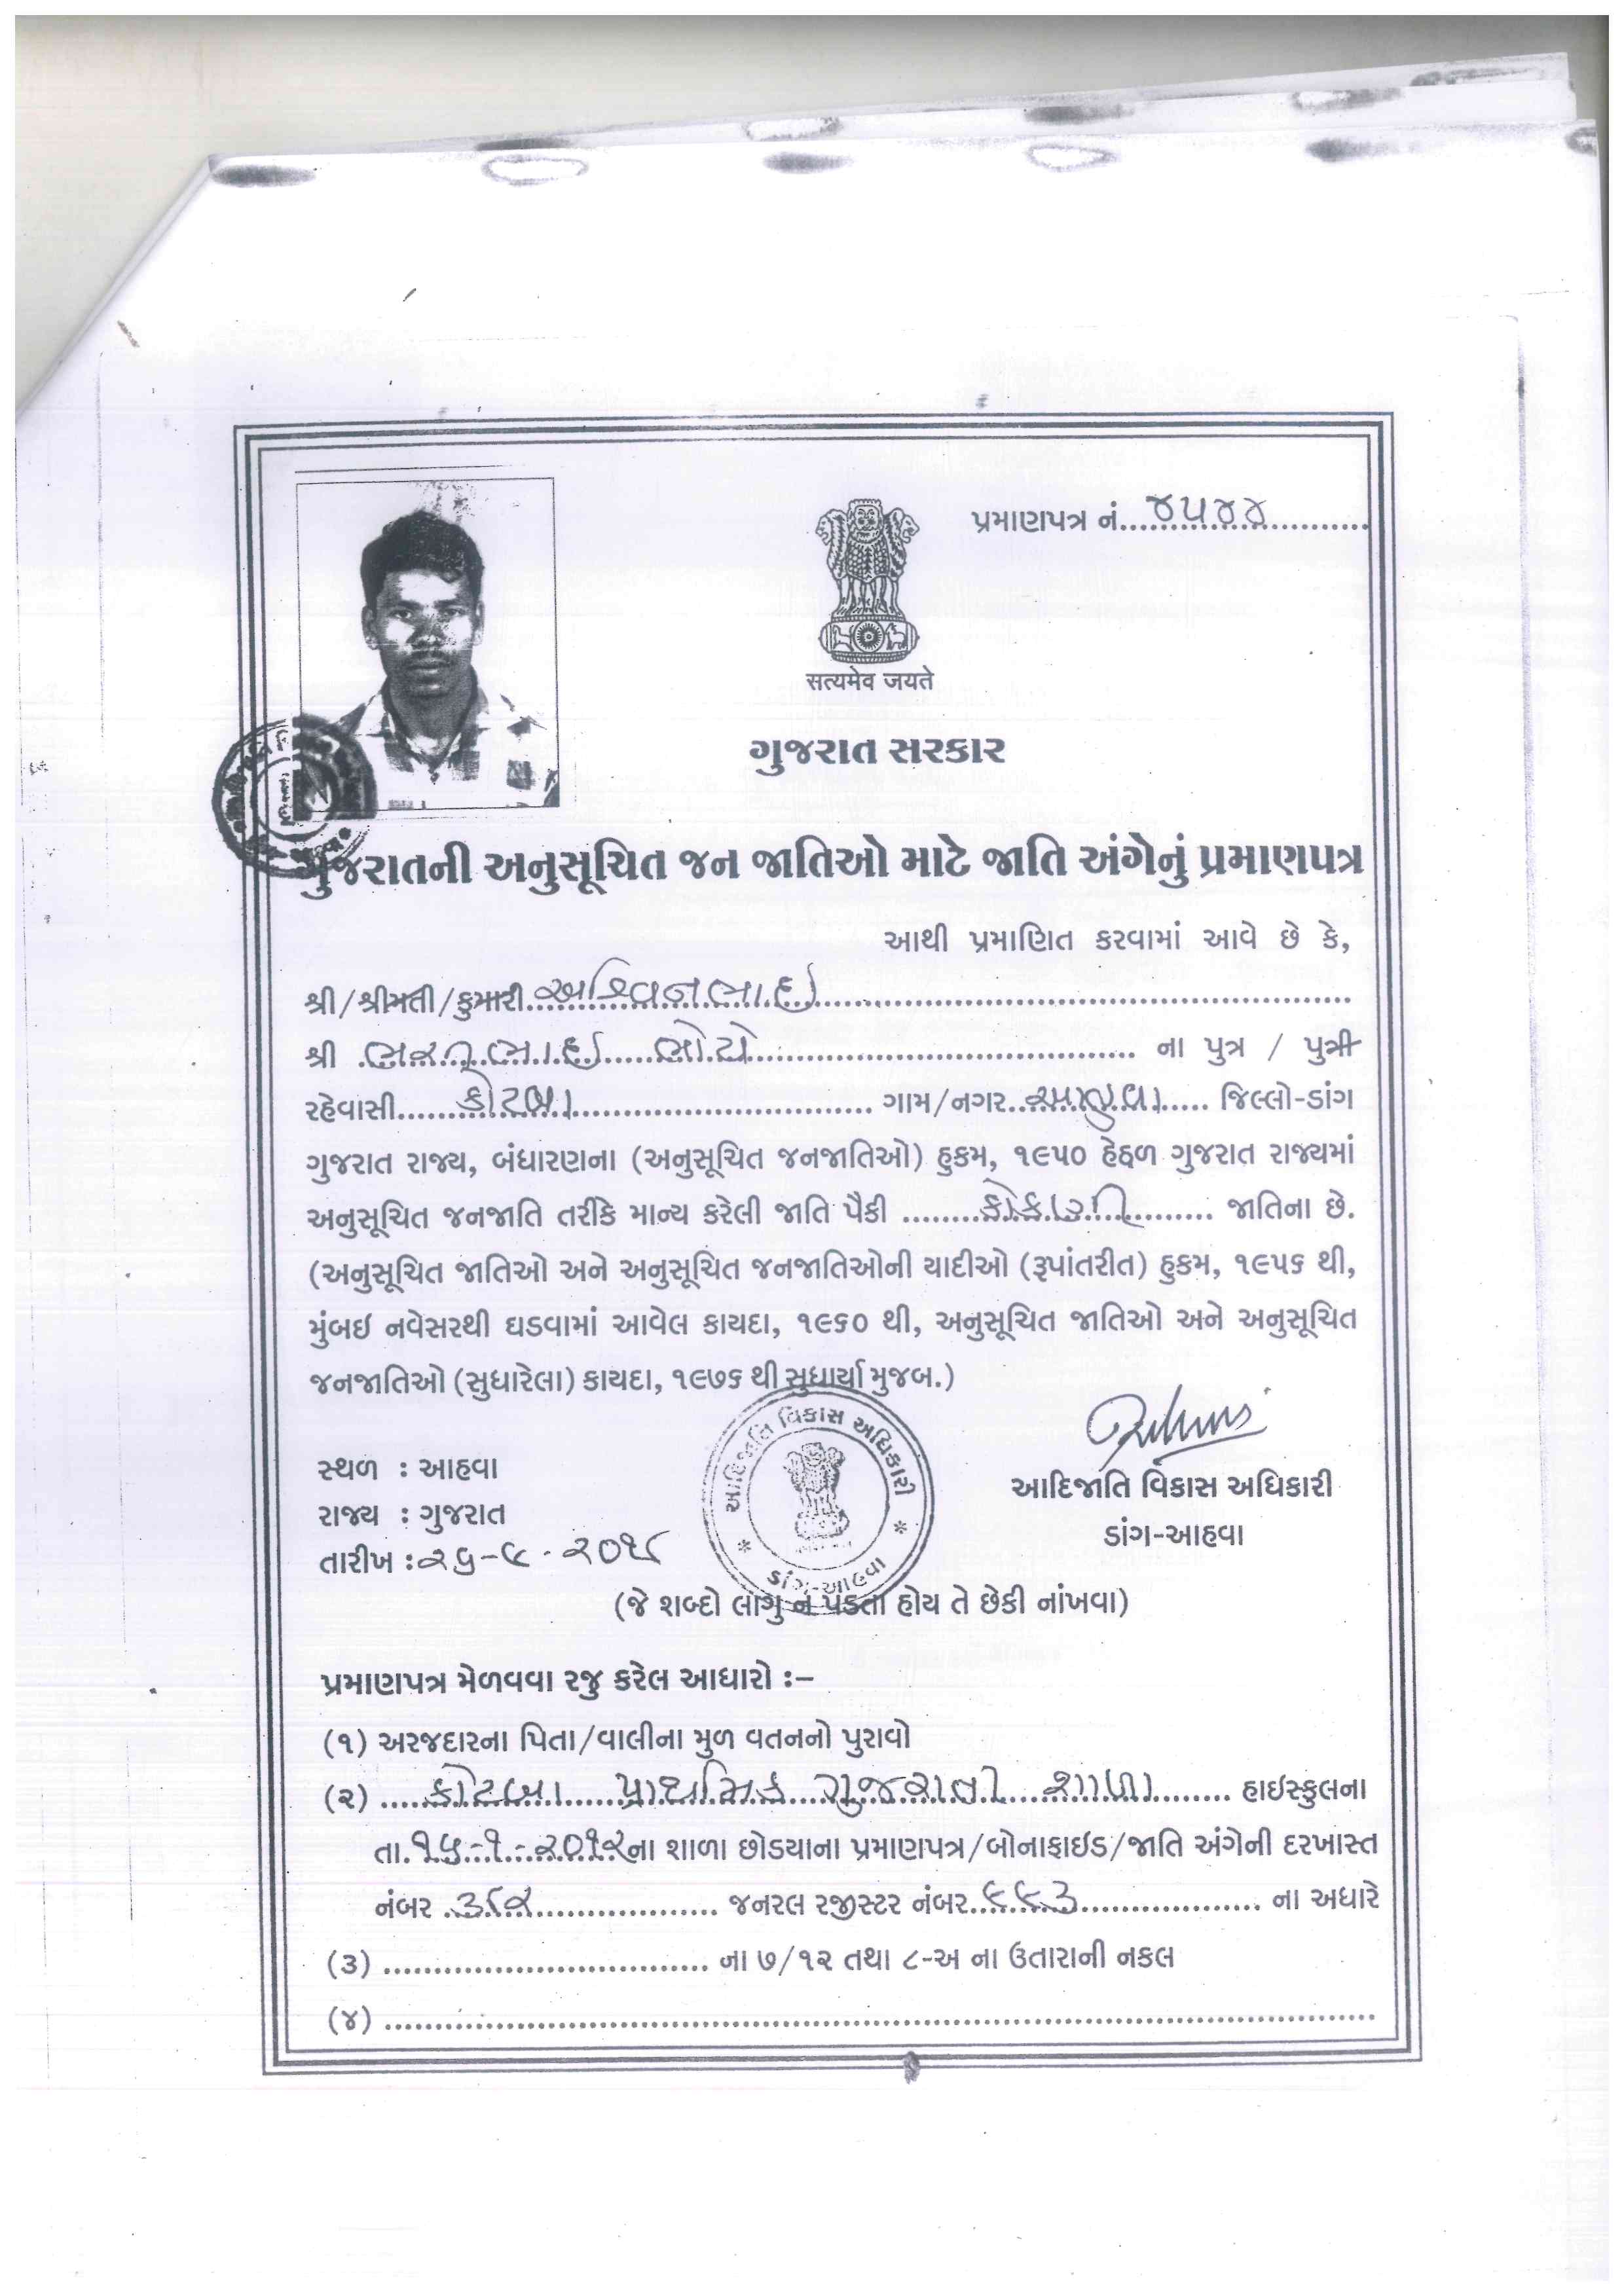 પ્રમાણપત્ર નં. ૪૫૪૪
सत्यमेव जयते
ગુજરાત સરકાર
ગુજરાતની અનુસૂચિત જન જાતિઓ માટે જાતિ અંગેનું પ્રમાણપત્ર
આથી પ્રમાણિત કરવામાં આવે છે કે,
શ્રી/શ્રીમતી/કુમારી અશ્વિનભાઇ
શ્રી ભરતુભાઇ ભોયે ના પુત્ર / પુત્રી
રહેવાસી કોટબા ગામ/નગર જિલ્લો-ડાંગ
ગુજરાત રાજ્ય, બંધારણના (અનુસૂચિત જનજાતિઓ) હુકમ, ૧૯૫૦ હેઠળ ગુજરાત રાજ્યમાં
અનુસૂચિત જનજાતિ તરીકે માન્ય કરેલી જાતિ પૈકી કોકણી જાતિના છે.
(અનુસૂચિત જાતિઓ અને અનુસૂચિત જનજાતિઓની યાદીઓ (રૂપાંતરીત) હુકમ, ૧૯૫૬ થી,
મુંબઇ નવેસરથી ઘડવામાં આવેલ કાયદા, ૧૯૬૦ થી, અનુસૂચિત જાતિઓ અને અનુસૂચિત
જનજાતિઓ (સુધારેલા) કાયદા, ૧૯૭૬ થી સુધાર્યા મુજબ.)
આદિજાતિ વિકાસ અધિકારી
ડાંગ-આહવા
સ્થળ : આહવા
રાજ્ય : ગુજરાત
તારીખ : ૨૬-૯-૨૦૧૮
આદિજાતિ વિકાસ અધિકારી
ડાંગ-આહવા
(જે શબ્દો લાગુ ન પડતા હોય તે છેકી નાંખવા)
પ્રમાણપત્ર મેળવવા રજુ કરેલ આધારો :–
(૧) અરજદારના પિતા/વાલીના મુળ વતનનો પુરાવો
(૨) કોટબા પ્રાથમિક ગુજરાતી શાળા હાઇસ્કુલના
તા. ૧૬-૧-૨૦૧૨ ના શાળા છોડયાના પ્રમાણપત્ર/બોનાફાઇડ/જાતિ અંગેની દરખાસ્ત
નંબર ૩૮૨ જનરલ રજીસ્ટર નંબર ૯૯૩ ના અધારે
(૩) ના ૭/૧૨ તથા ૮-અ ના ઉતારાની નકલ
(૪)